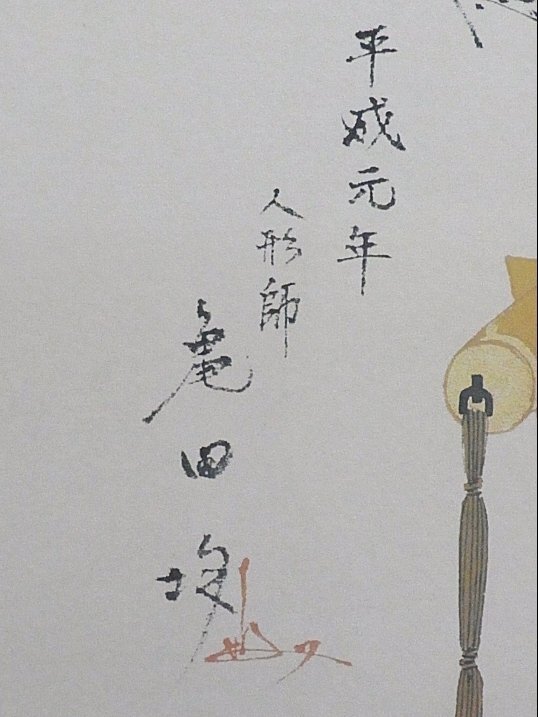 平成元年
人形師
亀田均